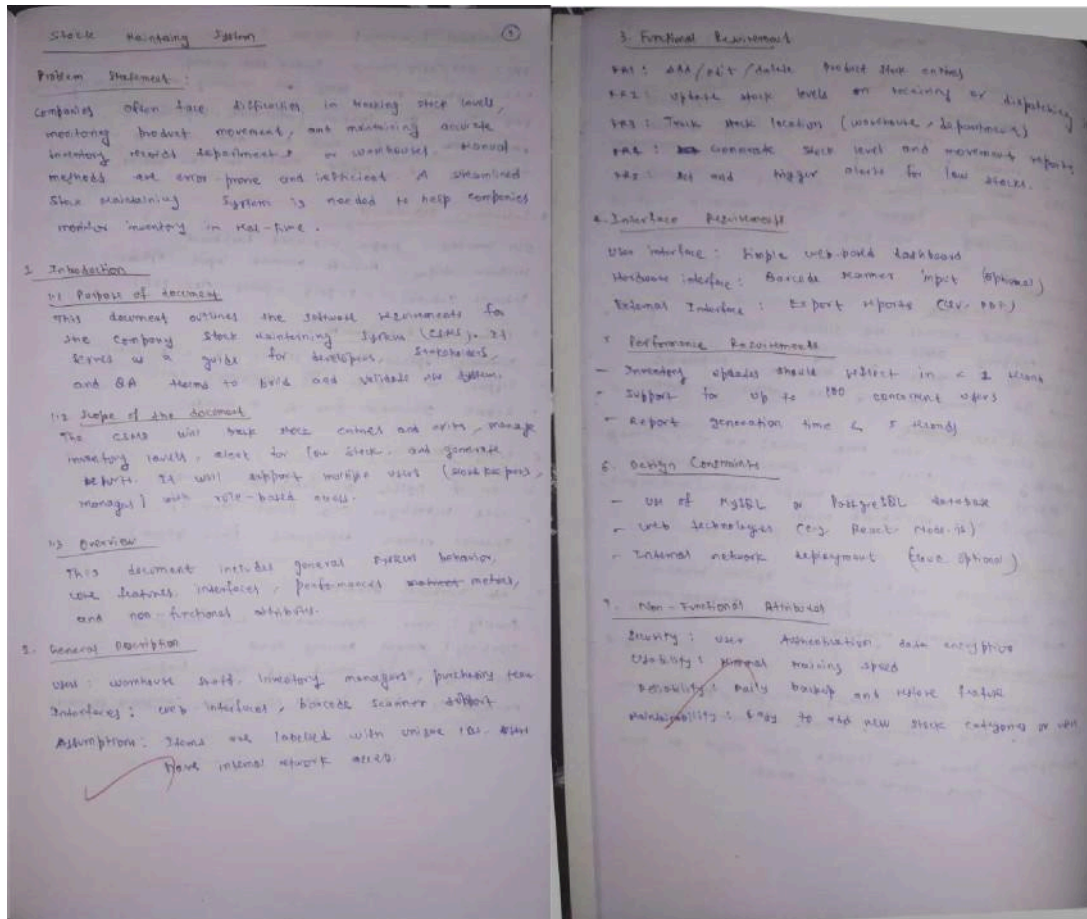 Stock Maintaing System
1
Problem Statement :
Companies often face difficulties in tracking stock levels,
monitoring product movement, and maintaining accurate
inventory records department in warehouses. Manual
methods are error prone and inefficient. A streamlined
Stock Maintaining System is needed to help companies
monitor inventory in real-time.
1. Introduction
1.1 Purpose of document
This document outlines the software requirements for
the company Stock Maintaining System (CSMS). It
serves as a guide for developers, stakeholders,
and QA teams to and validate the system.
1.2 Scope of the document
The CSMS will track stock entries and exits, manage
inventory levels, alert for low stock, and generate
reports. It will support multiple users (storekeepers,
managers) with role-based access.
1.3 Overview
This document includes general system behavior,
core features, interfaces, performances metrics,
and non-functional attributes.
2. General Description
Users : warehouse staff, Inventory managers, purchasing team
Interfaces : web interfaces, barcode scanner support
Assumption : Items are labelled with unique IDs.
have internal network access.
3. Functional Requirement
FR1 : Add/edit/delete product stock entries
FR2 : Update stock levels on receiving or dispatching
FR3 : Track stock location (warehouse, departments)
FR4 : Generate stock level and movement reports
FR5 : Set and trigger alerts for low stocks.
4. Interface Requirements
User interface : Simple web-based dashboard
Hardware interface : Barcode scanner input (optional)
External Interface : Export reports (CSV, PDF)
5 Performance Requirements
- Inventory updates should reflect in < 2 seconds
- Support for up to 100 concurrent users
- Report generation time < 5 seconds
6. Design Constraints
- Use of MySQL or PostgreSQL database
- Web technologies (e.g. React, Node.js)
- Internal network deployment (optional)
7. Non-Functional Attributes
Security : User Authentication, data encryption
Usability : Minimal training
Reliability : Daily backup and restore feature
Maintainability : Easy to add new stock categories or